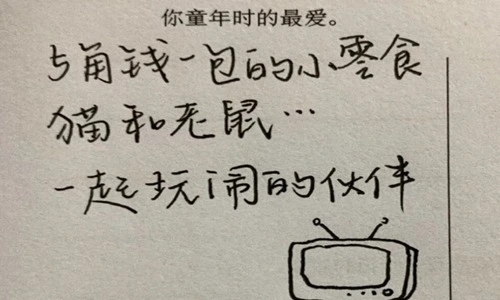 你童年时的最爱。
5角钱一包的小零食
猫和老鼠…
一起玩闹的伙伴